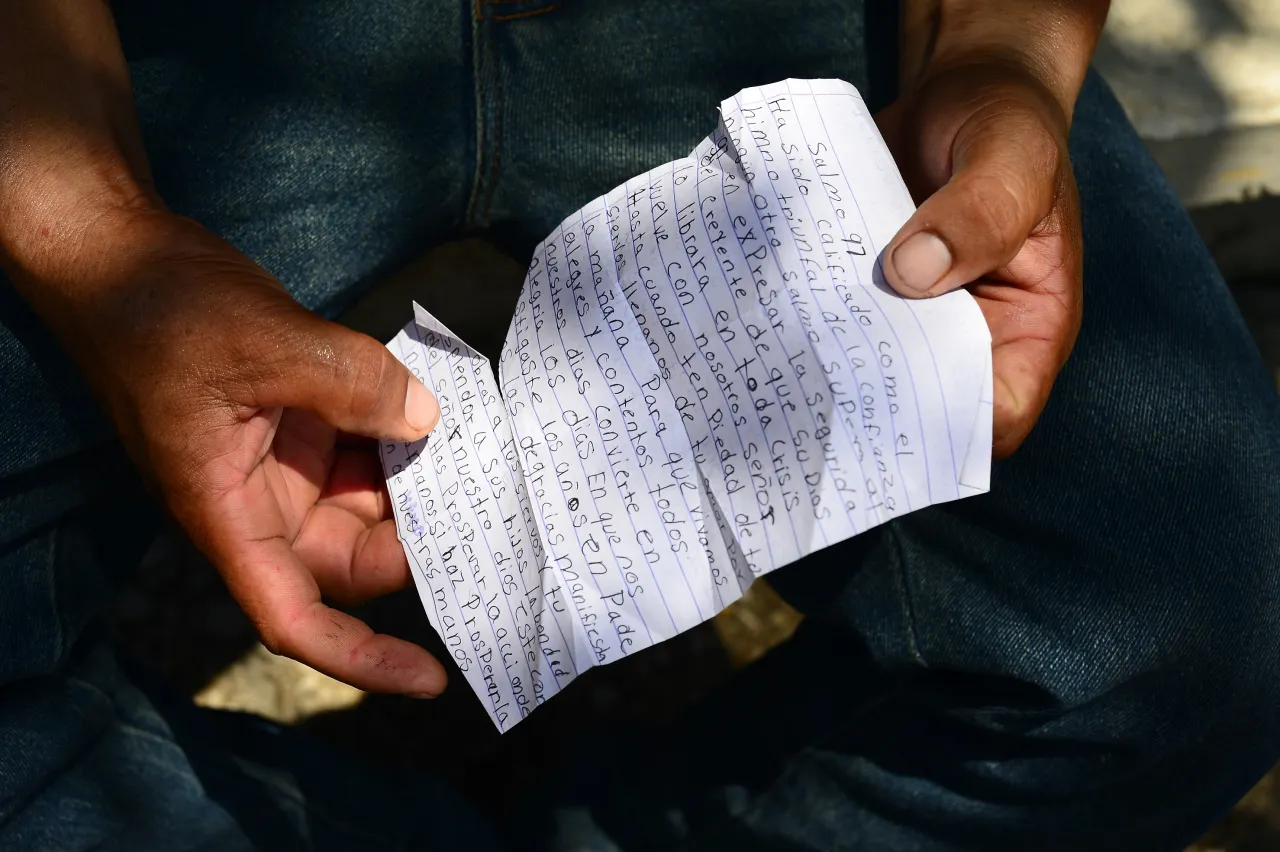 Salmo 97
calificado como el
Ha sido triunfal de la confianza
himno salmo supera al
ningun otro la segurida
en expresar de que su Dios
del creyente
lo librara en toda crisis
vuelve con nosotros señor
Hasta cuando ten piedad de tu
siervos llenanos de tu amor por
la mañana para que vivamos
alegres y contentos todos
nuestros dias convierte en
alegria los dias En que nos
afligaste los años en pade
las degracias manifiesta
a tus siervos tu
esplendor a sus hijos la bondad
del señor nuestro dios Este con
Prosperar la acci onde
manos si haz Prosperar la
de nuestras manos